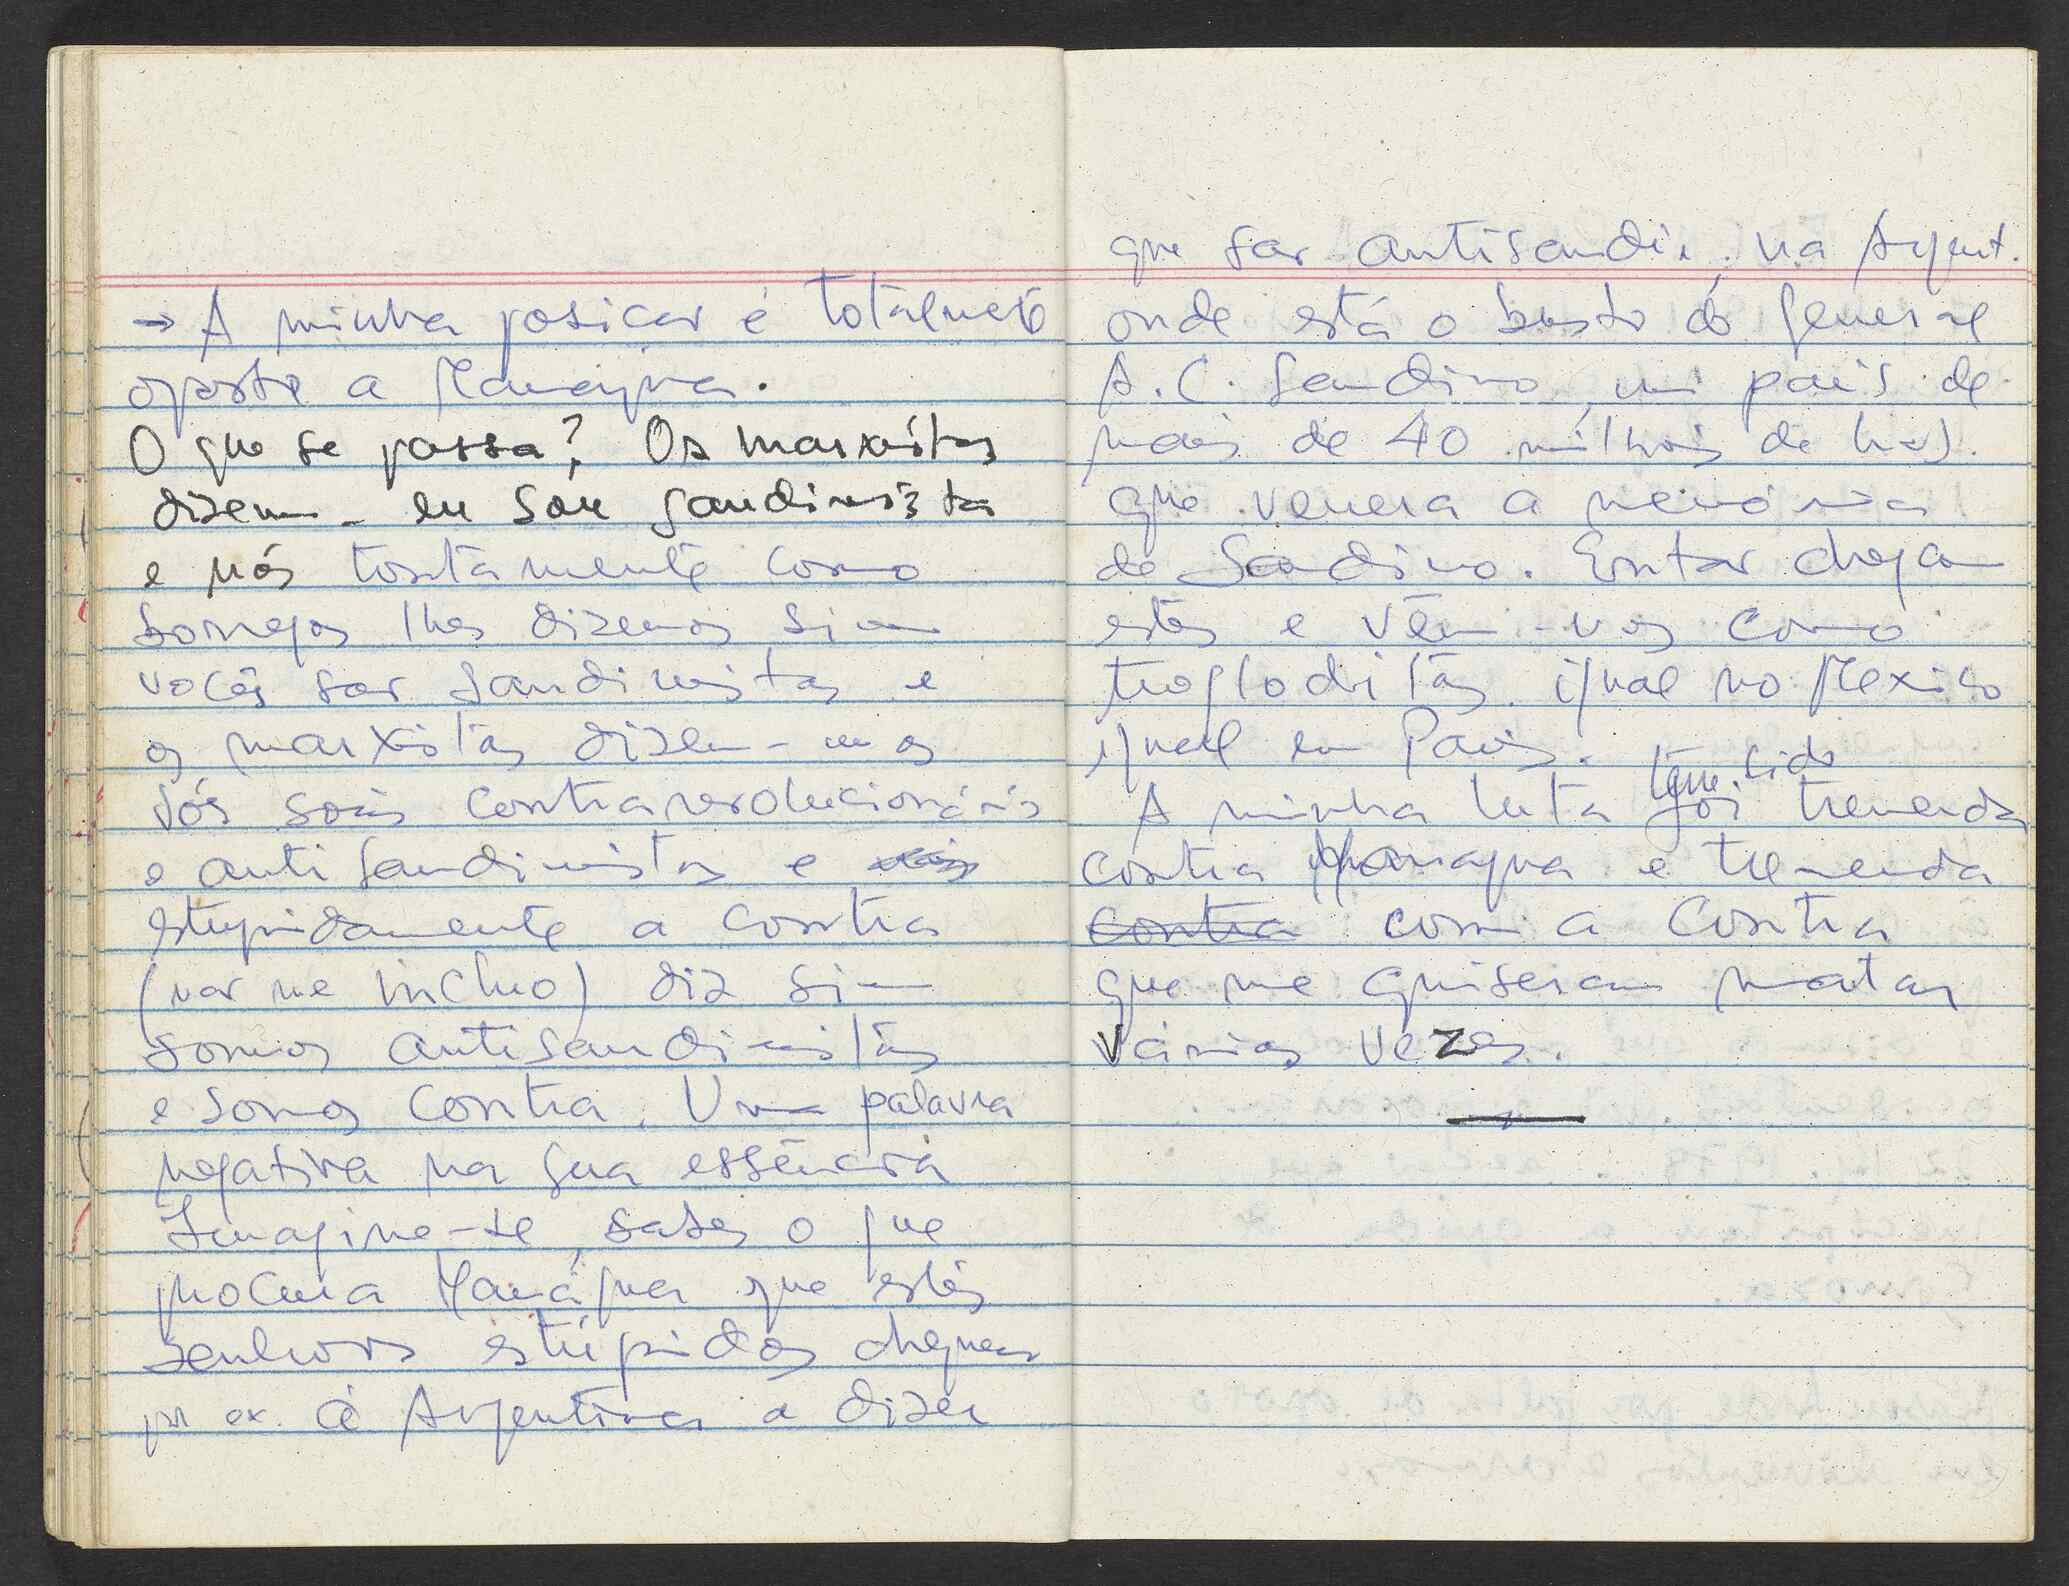 → A minha posição é totalmente
oposta a Managua.
O que se passa? Os marxistas
dizem - eu sou sandinista
e nós tontamente como
borregos lhes dizemos sim
vocês são sandinistas e
os marxistas dizem-nos
vós sois contrarevolucionários
e antisandinistas e
estupidamente a contra
(não me incluo) diz sim
somos antisandinistas
e somos contra. Uma palavra
negativa na sua essência
Imagine-se, sabes o que
procura Manágua que estes
senhores estúpidos cheguem
por ex. à Argentina a dizer
que são antisandin. na Argent.
onde está o busto do general
A. C. Sandino, um país de
mais de 40 milhões de hab.
que venera a memória
de Sandino. Então chegam
estes e vêm-nos como
trogloditas. igual no Mexico
igual em Paris.
tem sido
A minha luta foi tremenda
contra Managua e tremenda
contra com a Contra
que me quiseram matar
várias vezes.